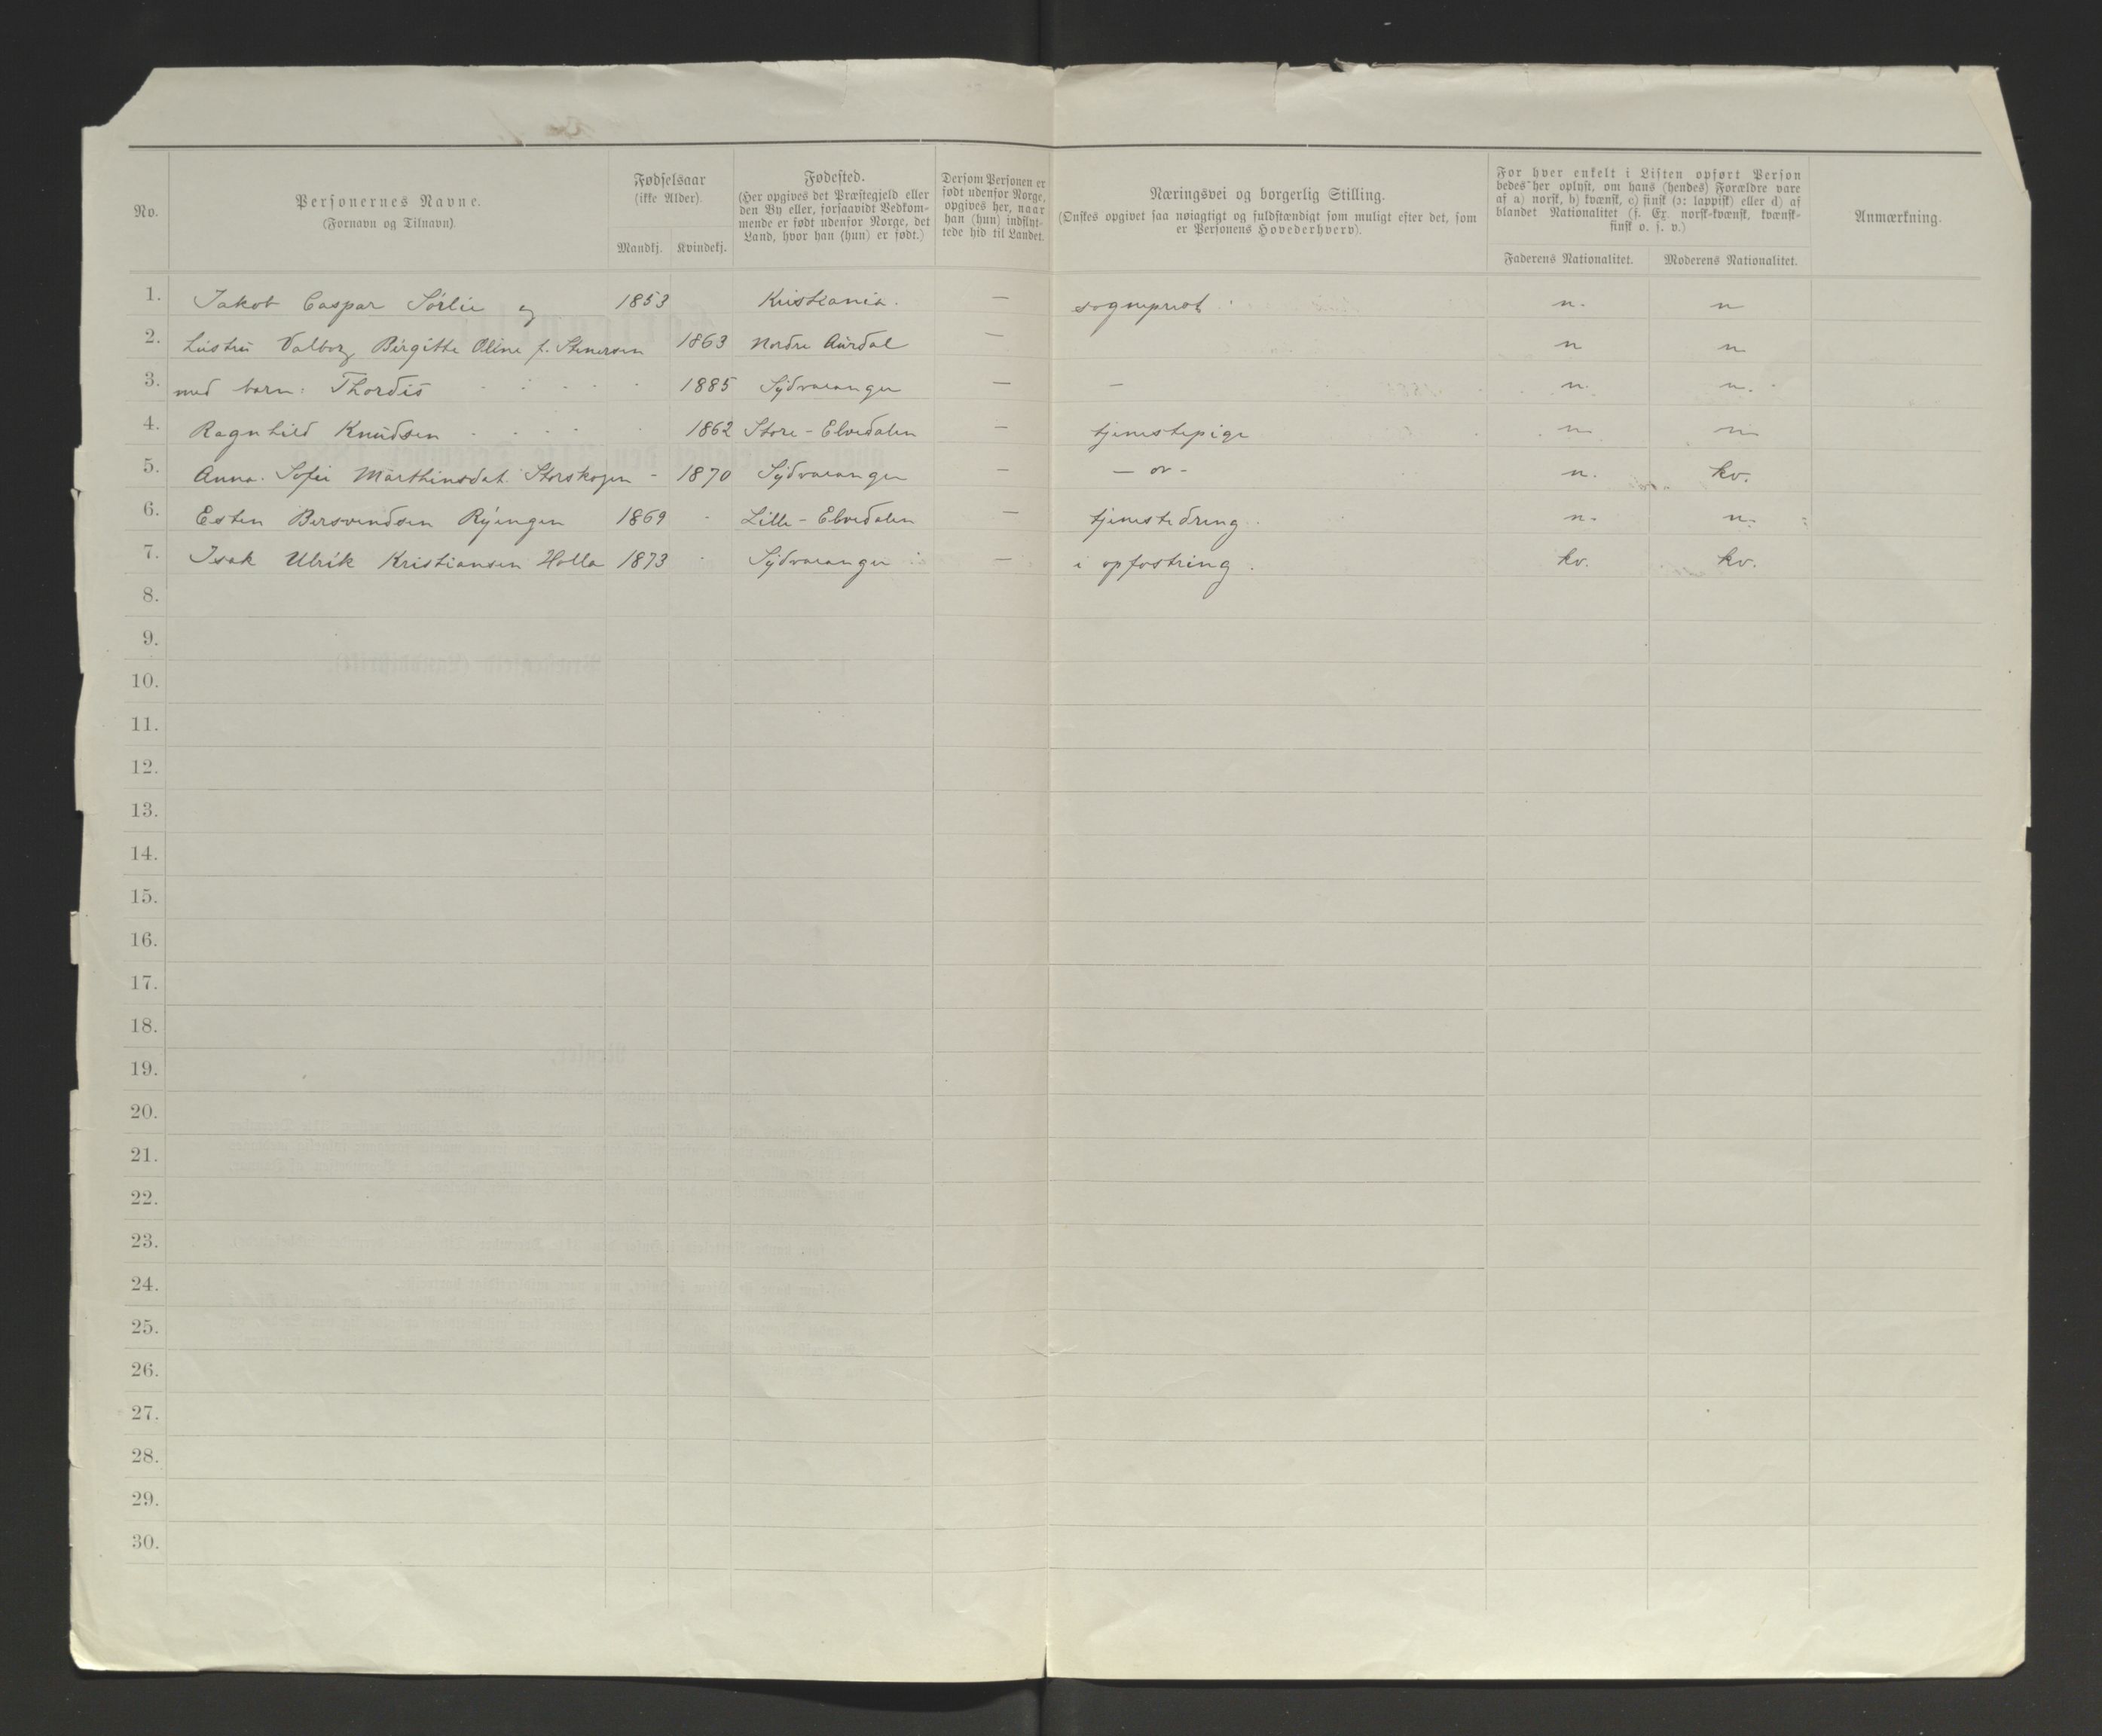 No.
Personernes Navne.
(Fornavn og Tilnavn).
Fødselsaar
(ikke Alder).
Mandkj. Kvindekj.
Fødested.
(Her opgives det Præstegjeld eller
den By eller, forsaavidt Vedkom-
mende er født udenfor Norge, det
Land, hvor han (hun) er født.)
Dersom Personen er
født udenfor Norge,
opgives her, naar
han (hun) indflyt-
tede hid til Landet.
Næringsvei og borgerlig Stilling.
(Ønskes opgivet saa nøiagtigt og fuldstændigt som muligt efter det, som
er Personens Hovederhverv).
For hver enkelt i Listen opført Person
bedes her oplyst, om hans (hendes) Forældre vare
af a) norsk, b) kvænsk, c) finsk (ɔ: lappisk) eller d) af
blandet Nationalitet (f. Ex. norsk-kvænsk, kvænsk-
finsk o. s. v.)
Faderens Nationalitet. Moderens Nationalitet.
Anmærkning.
1. Jakob Caspar Sørlie og 1853 Kristiania. — sogneprest n. n
2. hustru Valborg Birgitte Oline f. Stenersen 1863 Nordre Aurdal — n n
3. med barn: Thordis 1885 Sydvaranger — — n. n.
4. Ragnhild Knudsen 1862 Store-Elvedalen — tjenestepige n n
5. Anna Sofie Marthinsdat. Storskogen - 1870 Sydvaranger — — " — n. kv.
6. Esten Bersvendsen Ryengen 1869 Lille-Elvedalen — tjenestedreng n. n.
7. Isak Ulrik Kristiansen Holla 1873 Sydvaranger — i opfostring. kv. kv.
8.
9.
10.
11.
12.
13.
14.
15.
16.
17.
18.
19.
20.
21.
22.
23.
24.
25.
26.
27.
28.
29.
30.